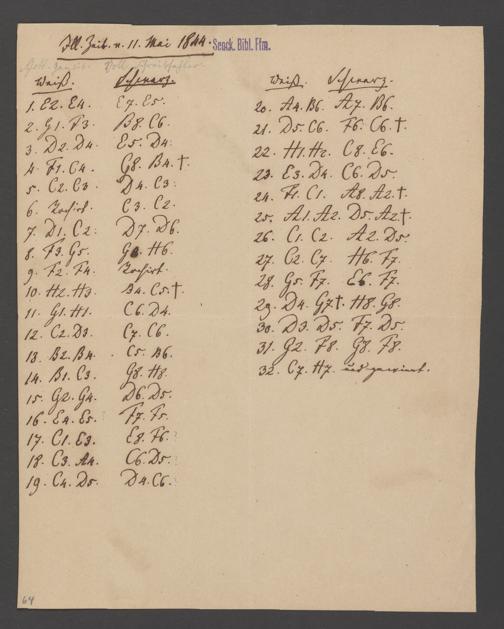 Ill. Zeit. v. 11. Mai 1844. Senck. Bibl. Ffm.
Weiß. Schwarz.
1. E2. E4. E7. E5.
2. G1. F3. B8. C6.
3. D2. D4. E5. D4.
4. F1. C4. G8. B4. †
5. C2. C3. D4. C3.
6. Rochirt. C3. C2.
7. D1. C2. D7. D6.
8. F3. G5. G8. H6.
9. F2. F4. Rochirt.
10. H2. H3. B4. C5. †
11. G1. H1. C6. D4.
12. C2. D3. C7. C6.
13. B2. B4. C5. B6.
14. B1. C3. G8. H8.
15. G2. G4. D6. D5.
16. E4. E5. F7. F5.
17. C1. E3. E8. F6.
18. C3. A4. C6. D5.
19. C4. D5. D4. C6.
Weiß. Schwarz.
20. A4. B6. A7. B6.
21. D5. C6. F6. C6. †
22. H1. H2. C8. E6.
23. E3. D4. C6. D5.
24. F1. C1. A8. A2. †
25. A1. A2. D5. A2. †
26. C1. C2. A2. D5.
27. C2. C7. H6. F7.
28. G5. F7. E6. F7.
29. D4. G7 † H8. G8.
30. D3. D5. F7. D5.
31. G2. F8. G8. F8.
32. C7. H7. und gewinnt.
64